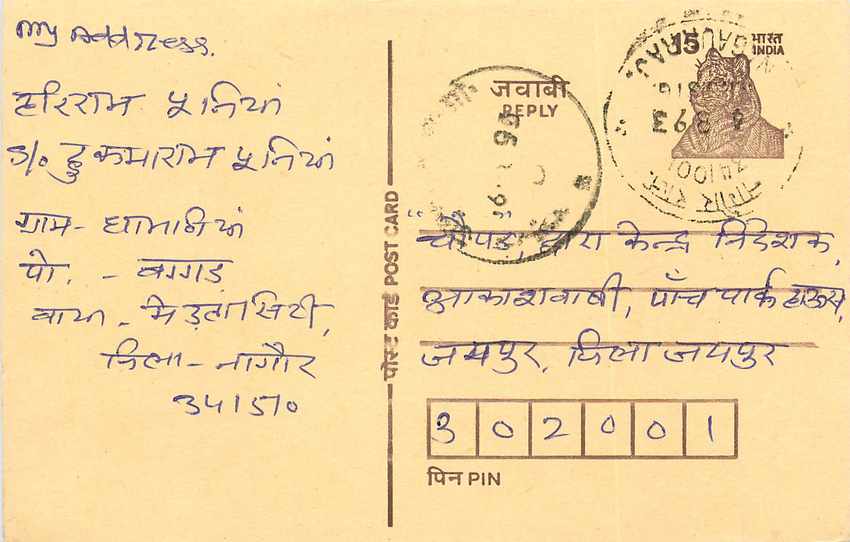 my Address.
हरिराम पूनियां
S/o हुकमाराम पूनियां
ग्राम - धामनियां
पो. - बग्गड़
वाया - मेड़तासिटी,
जिला - नागौर
341510
पोस्ट कार्ड POST CARD
जवाबी
REPLY
15
भारत
INDIA
4 8 93
341001
"चौपड़", द्वारा केन्द्र निदेशक,
आकाशवाणी, पाँच पार्क हाऊस,
जयपुर, जिला जयपुर
302001
पिन PIN